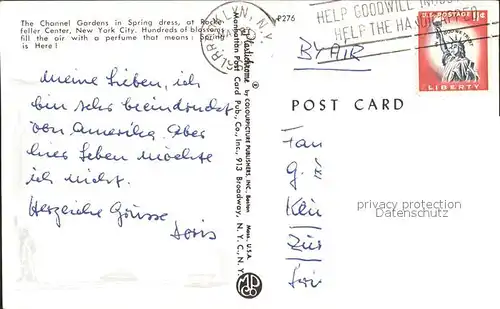 The Channel Gardens in Spring dress, at Rocke-
feller Center, New York City. Hundreds of blossoms
fill the air with a perfume that means: Spring
is Here!
P276
BROOKLYN, N.Y.
HELP GOODWILL INDUS
HELP THE HANDICAPPED
U.S. POSTAGE 11¢
IN GOD WE TRUST
LIBERTY
BY AIR
Meine Lieben, ich
bin sehr beeindruckt
von Amerika. Aber
hier Leben möchte
ich nicht.
Herzliche Grüsse
Doris
Plastichrome by COLOURPICTURE PUBLISHERS, INC., Boston, Mass., U.S.A.
Manhattan Post Card Pub. Co., Inc., 913 Broadway, N. Y. C., N. Y.
POST CARD
Fam
G.
Zür
privacy protected
Datenschutz